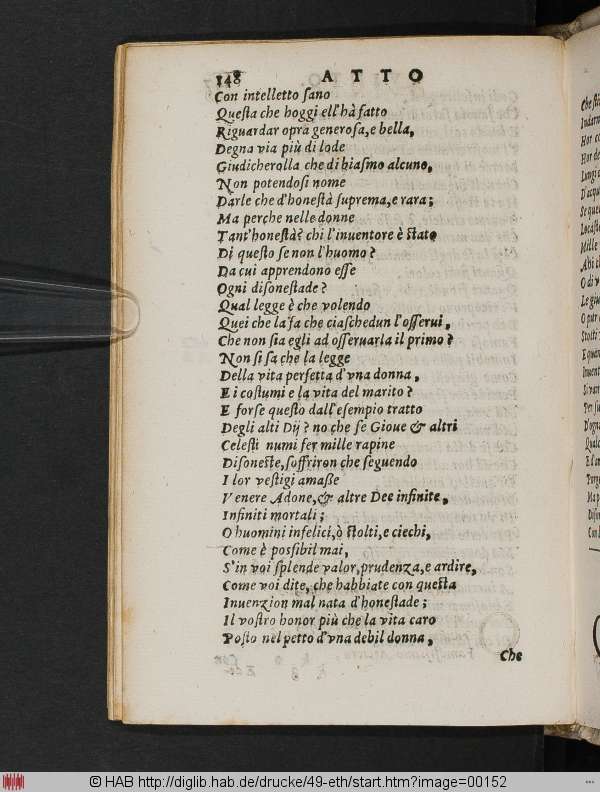 148 ATTO
Con intelletto ſano
Queſta che hoggi ell'hà fatto
Riguardar opra generoſa,e bella,
Degna via più di lode
Giudicherolla che di biaſmo alcuno,
Non potendoſi nome
Darle che d'honeſtà ſuprema,e rara;
Ma perche nelle donne
Tant'honeſtà? chi l'inuentore è ſtato
Di queſto ſe non l'huomo?
Da cui apprendono eſſe
Ogni diſoneſtade?
Qual legge è che volendo
Quei che la fa che ciaſchedun l'oſſerui,
Che non ſia egli ad oſſeruarla il primo?
Non ſi ſa che la legge
Della vita perfetta d'vna donna,
E i coſtumi e la vita del marito?
E forſe queſto dall'eſempio tratto
Degli alti Dij? no che ſe Gioue & altri
Celeſti numi fer mille rapine
Diſoneſte,ſoffriron che ſeguendo
I lor veſtigi amaße
Venere Adone,& altre Dee infinite,
Infiniti mortali;
O huomini infelici,ò ſtolti,e ciechi,
Come è poſſibil mai,
S'in voi ſplende valor,prudenza,e ardire,
Come voi dite, che habbiate con queſta
Inuenzion mal nata d'honeſtade;
Il voſtro honor più che la vita caro
Poſto nel petto d'vna debil donna,
Che
© HAB http://diglib.hab.de/drucke/49-eth/start.htm?image=00152